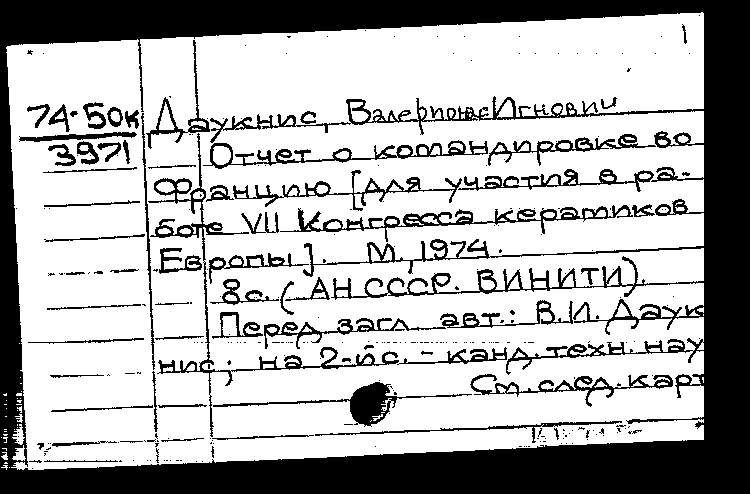 1
74-50к Даукнис, Валерионас Игнович
3971 Отчет о командировке во
Францию [для участия в ра-
боте VII Конгресса керамиков
Европы]. М., 1974.
8с. (АН СССР. ВИНИТИ).
Перед загл. авт.: В.И. Даук
нис; на 2-й с. - канд. техн. нау
См. след. карт